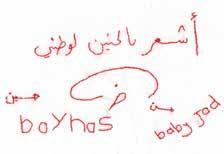 أشعر بالحنين لوطني
حسين
baYhas
baby Jad